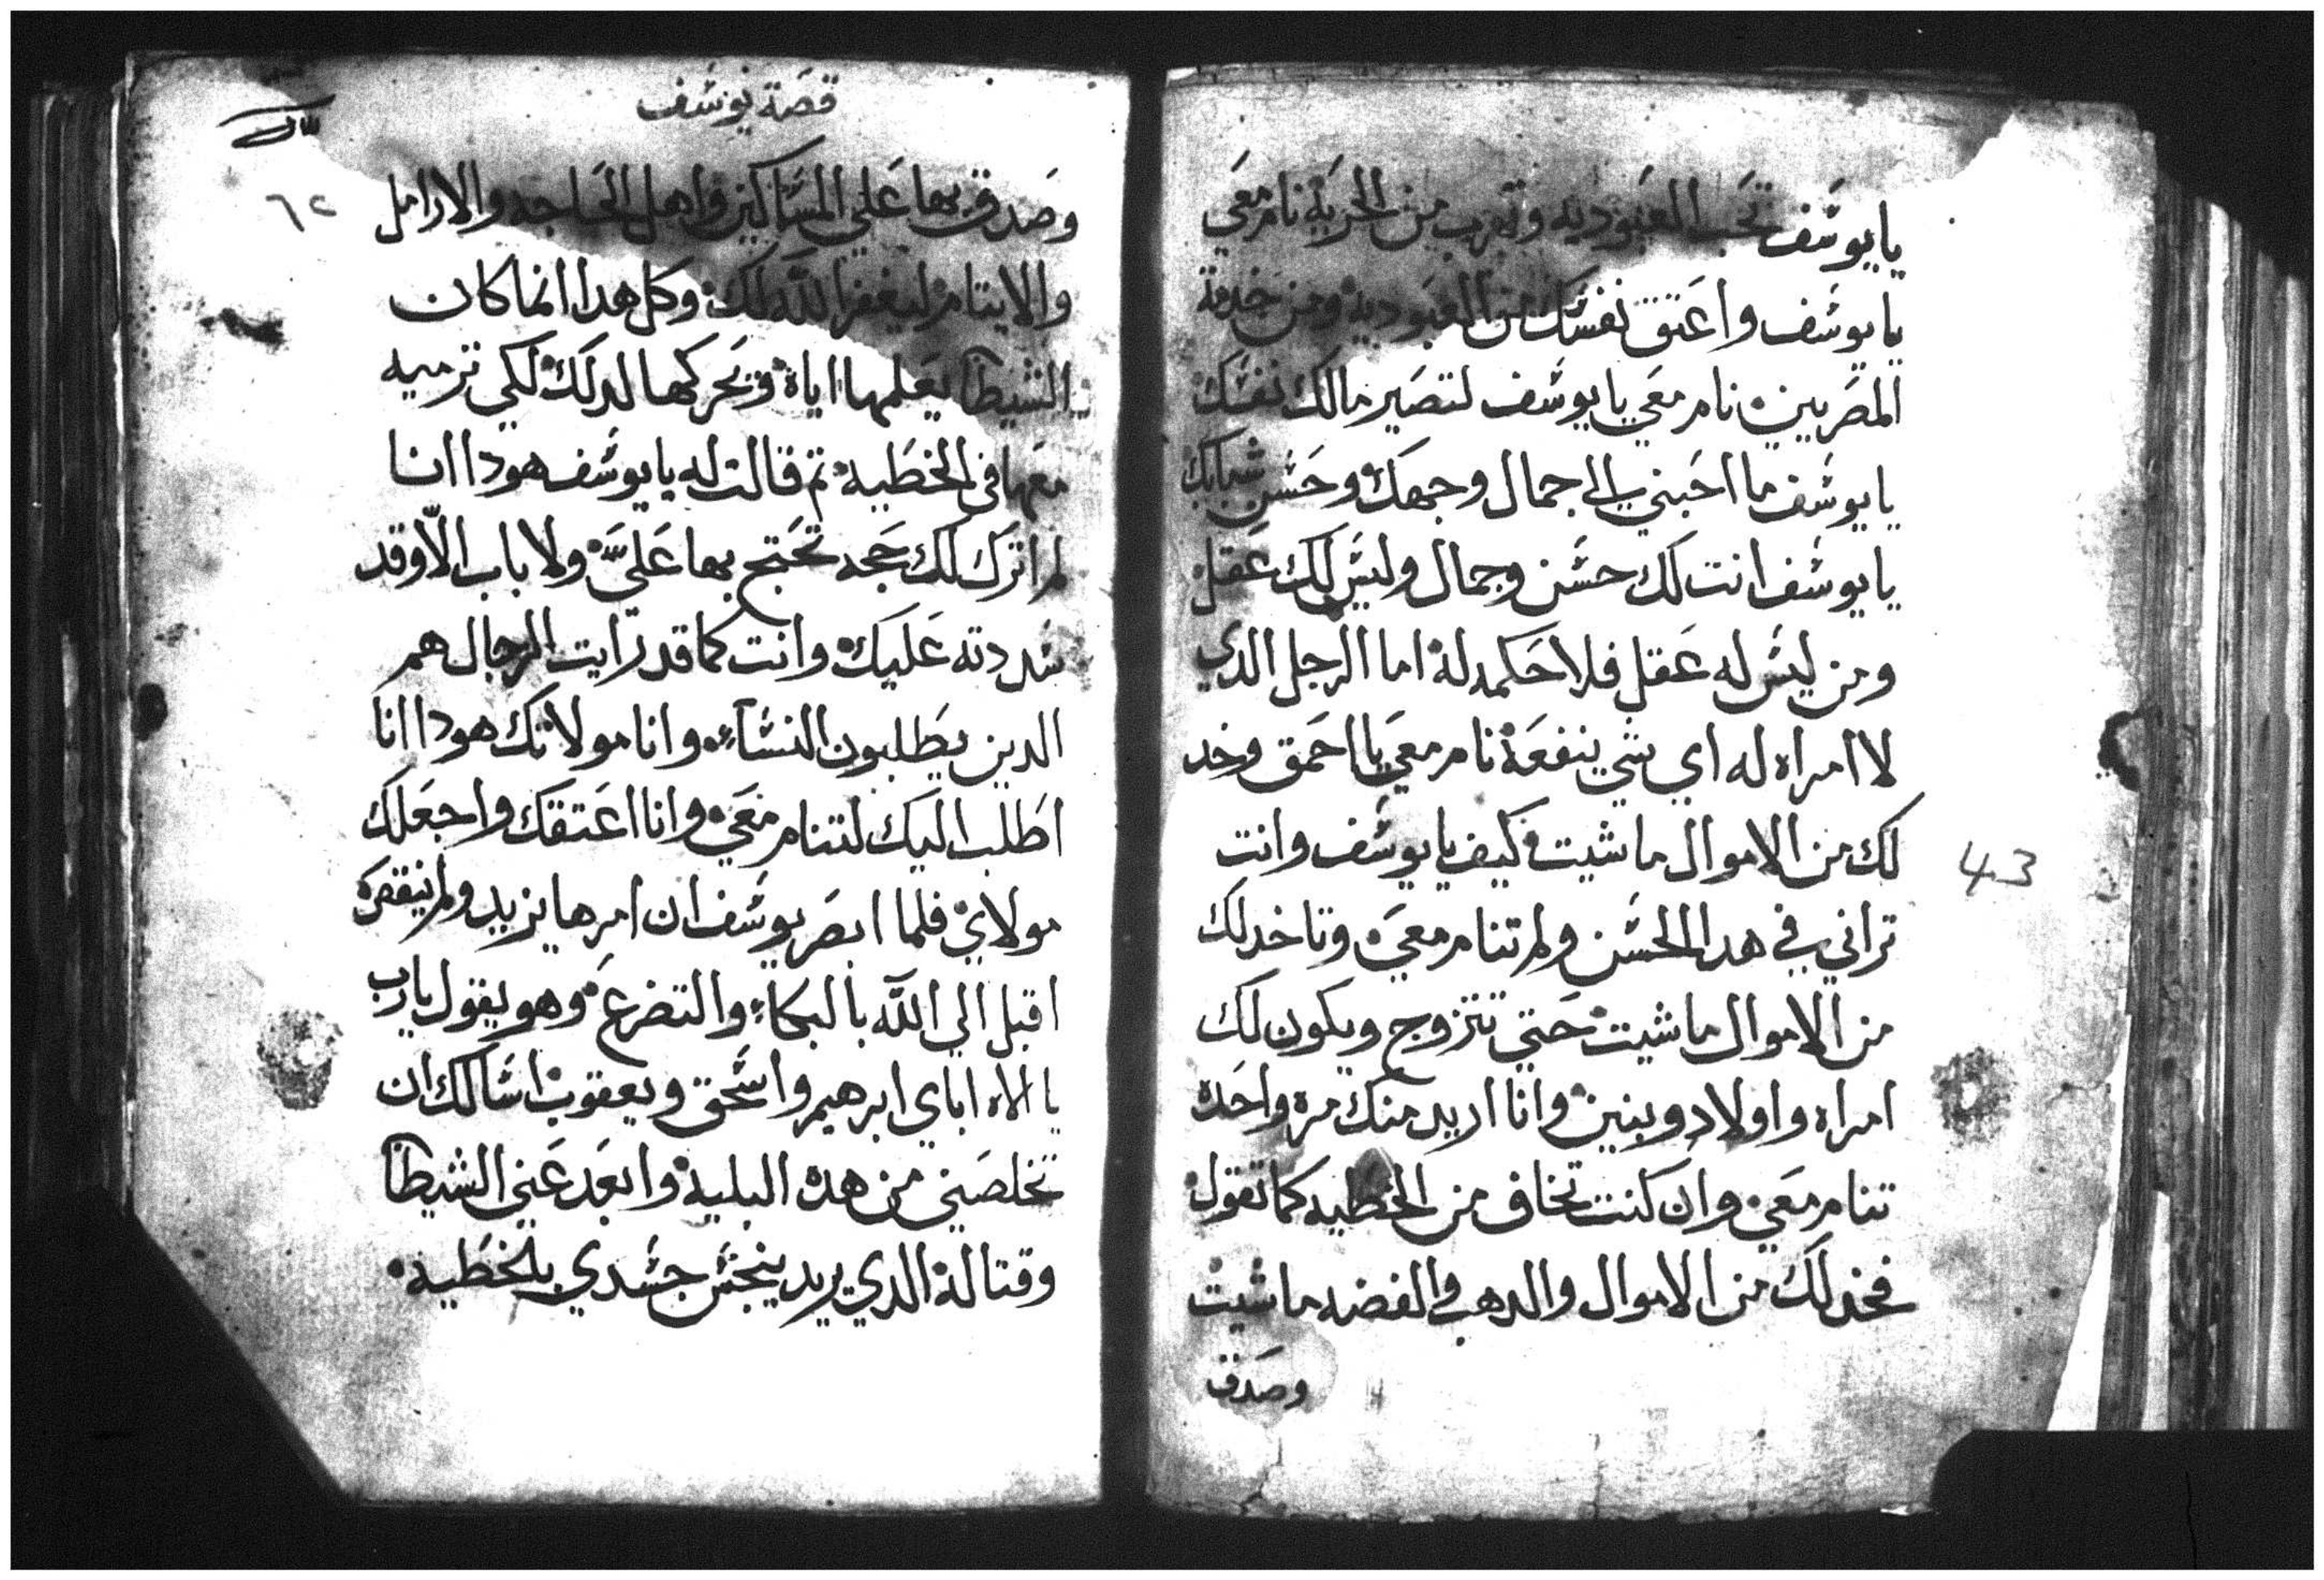 يا يوسف تحب العبوديه وتهرب من الحريه نام معي
يا يوسف واعتق نفسك من العبوديه ومن خدمة
المصريين نام معي يا يوسف لتصير مالك نفسك
يا يوسف ما احبني الي جمال وجهك وحسن شبابك
يا يوسف انت لك حسن وجمال وليس لك عقل
ومن ليس له عقل فلا حكمه له اما الرجل الدي
لا امراه له اي شي ينفعه نام معي يا احمق وخد
لك من الاموال ما شيت وكيف يا يوسف وانت
تراني في هدا الحسن ولم تنام معي وتاخد لك
من الاموال ما شيت حتي تتزوج ويكون لك
امراه واولاد وبنين وانا اريد منك مره واحده
تنام معي وان كنت تخاف من الخطيه كما تقول
فخد لك من الاموال والدهب والفضه ما شيت
وصدق
43
قصة يوسف
٦٢
وصدق بها علي المساكين واهل الحاجه والارامل
والايتام ليغفر الله لك وكل هدا انما كان
الشيطان يعلمها اياه ويحركها لدلك لكي ترميه
معها في الخطيه تم قالت له يا يوسف هودا انا
لم اترك لك حجه تحتج بها علي ولا باب الا وقد
سددته عليك وانت كما قد ترايت الرجال هم
الدين يطلبون النساء وانا مولاتك هودا انا
اطلب اليك لتنام معي وانا اعتقك واجعلك
مولاي فلما ابصر يوسف ان امرها يزيد ولم ينقص
اقبل الي الله بالبكاء والتضرع وهو يقول يا رب
يا الاه اباي ابرهيم واسحق ويعقوب اسالك ان
تخلصني من هده البليه وابعد عني الشيطان
وقتاله الدي يريد ينجس جسدي بلخطيه